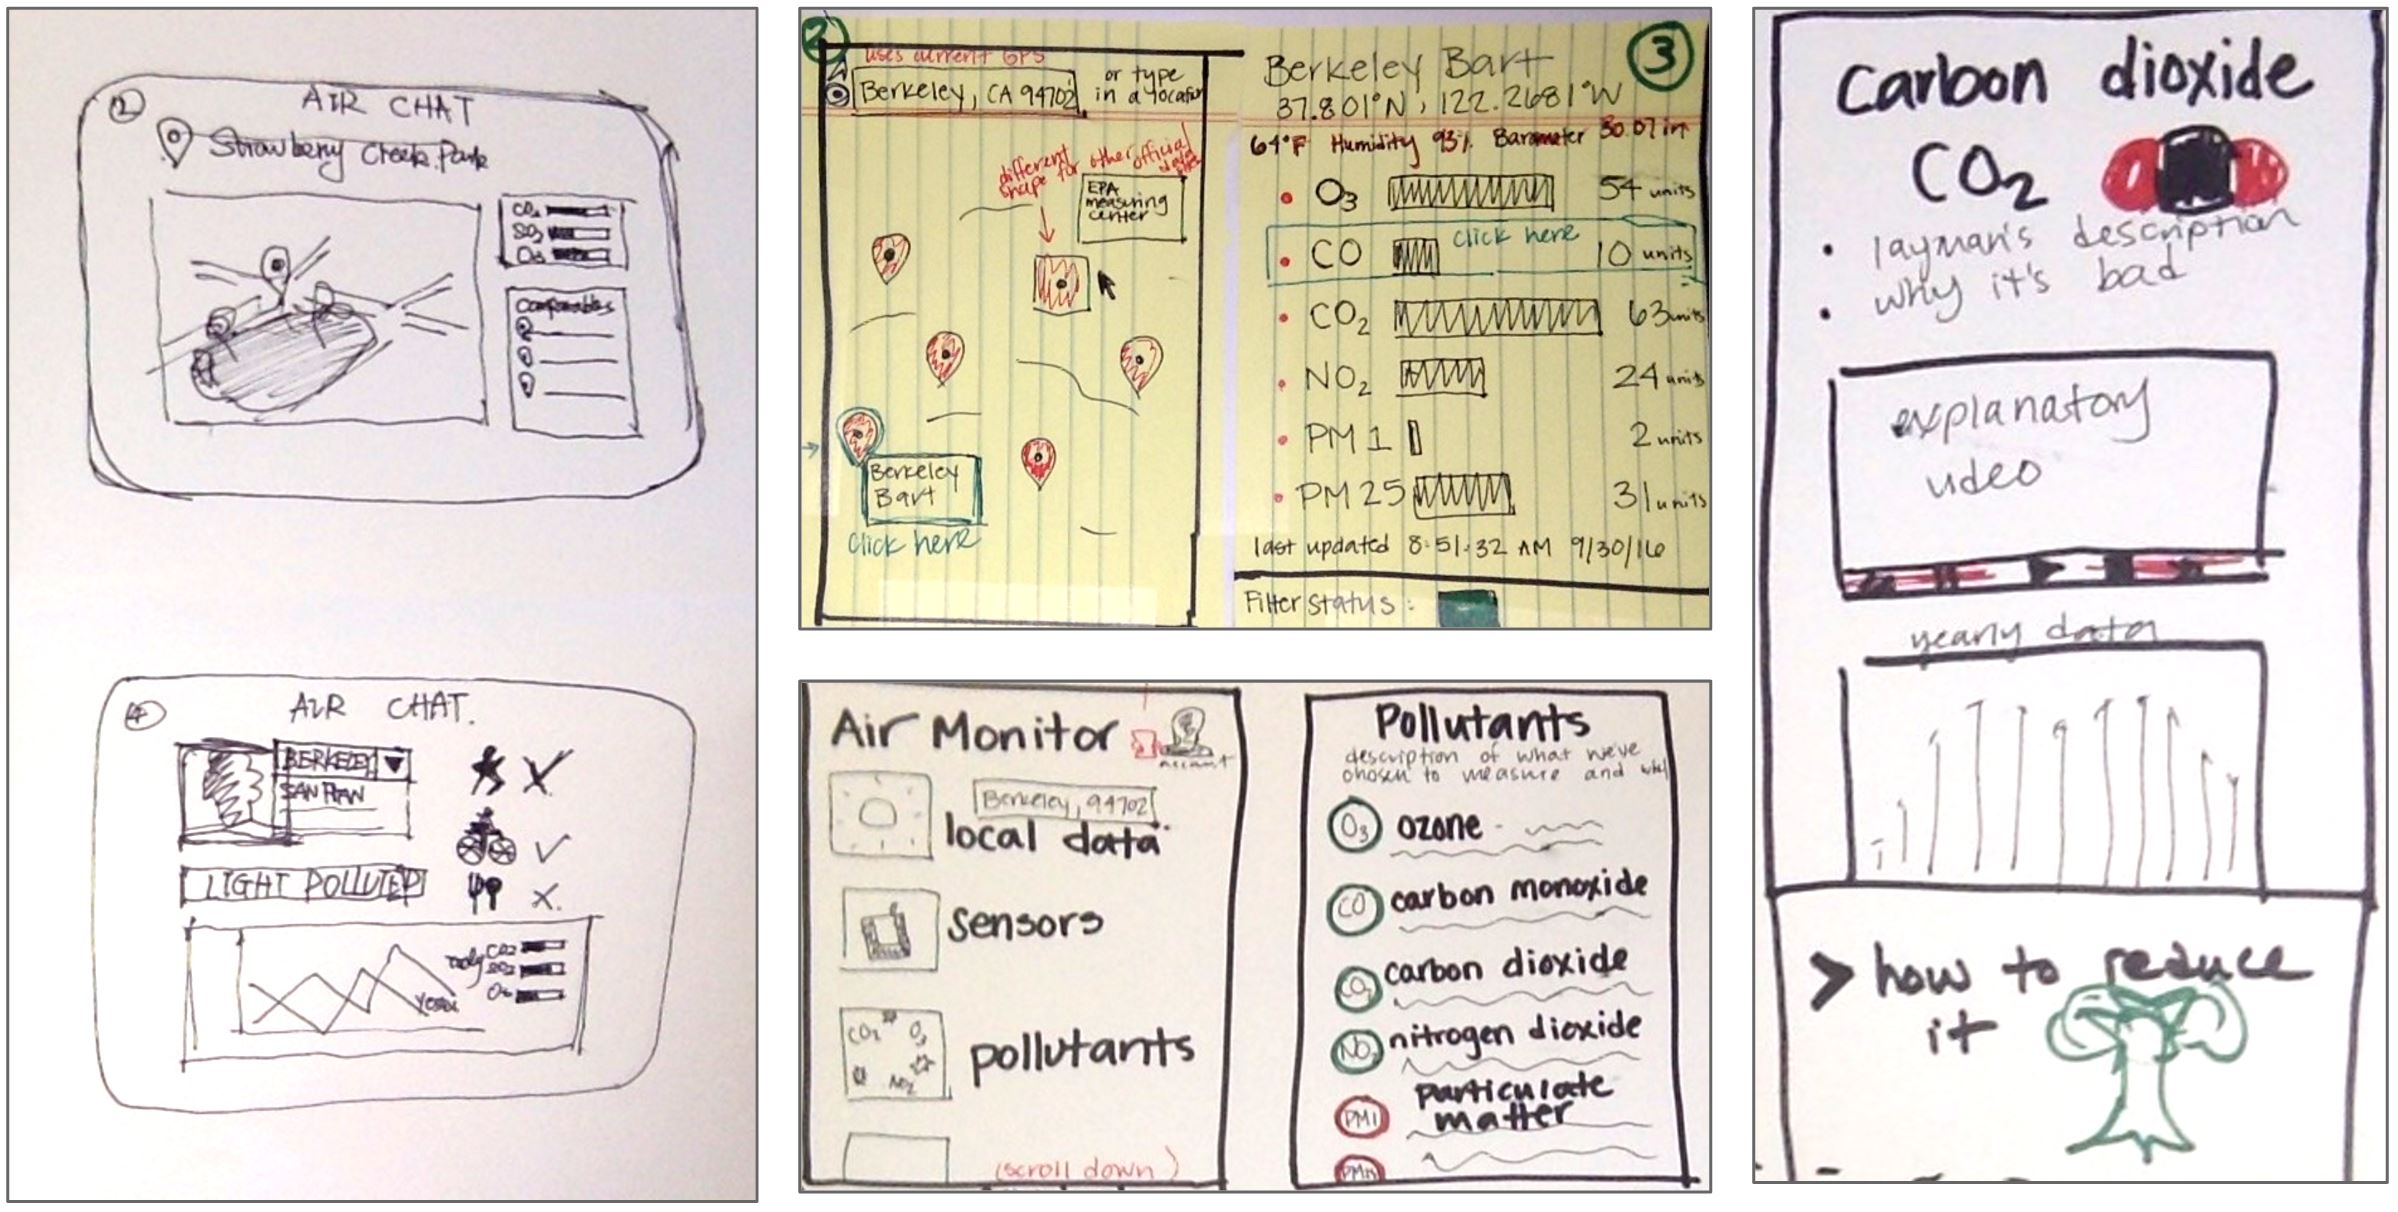 2
AIR CHAT
Strawberry Creek Park
CO2
SO2
O3
Comparables
4
AIR CHAT.
BERKELEY
SAN FRAN
LIGHT POLLUTED
CO2
SO2
2
uses current GPS
Berkeley, CA 94702
or type
in a location
different
shape for other official
EPA
measuring
center
Berkeley
Bart
click here
3
Berkeley Bart
37.801°N, 122.2681°W
64°F Humidity 93% Barometer 30.07 in
O3 54 units
click here
CO 10 units
CO2 63 units
NO2 24 units
PM 1 2 units
PM 25 31 units
last updated 8:51:32 AM 9/30/16
Filter Status:
Air Monitor
account
Berkeley, 94702
local data
sensors
CO2 O3
NO2
pollutants
(scroll down)
Pollutants
description of what we've
chosen to measure and why
O3 ozone
CO carbon monoxide
CO2 carbon dioxide
NO2 nitrogen dioxide
PM1 particulate
matter
carbon dioxide
CO2
• layman's description
• why it's bad
explanatory
video
yearly data
> how to reduce
it